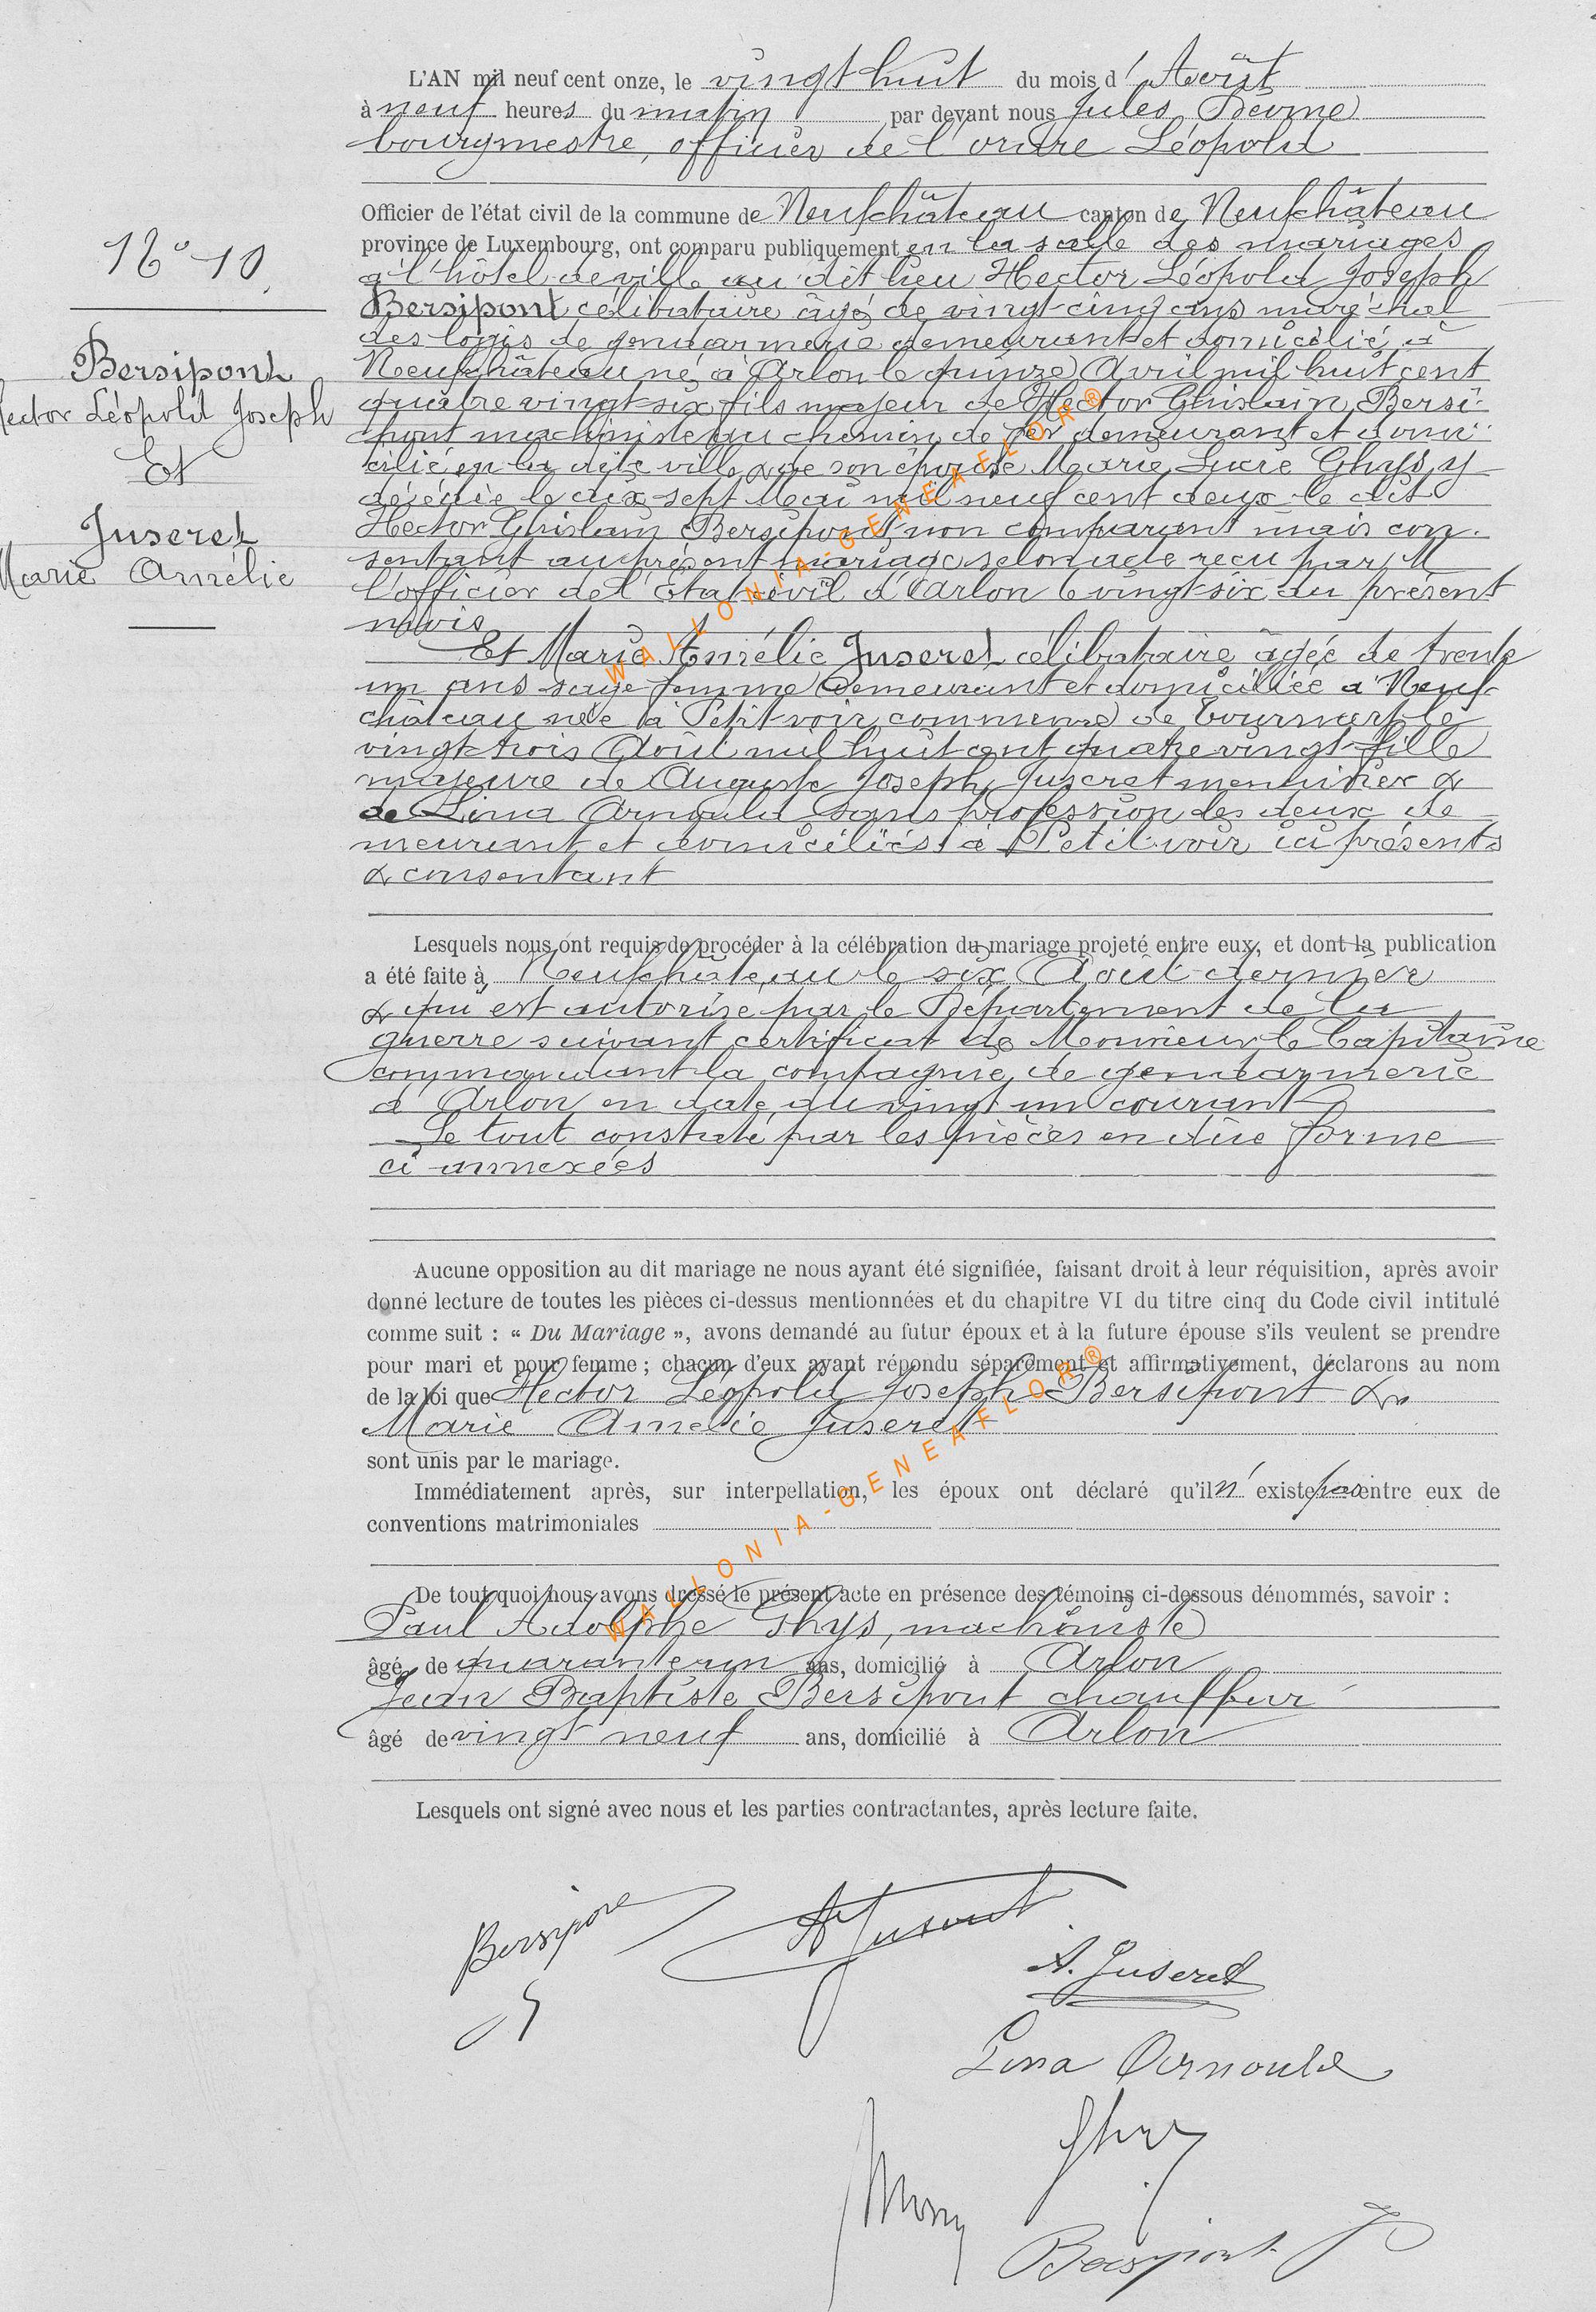 L'AN mil neuf cent onze, le vingt huit du mois d' Août
à neuf heures du matin par devant nous Jules
bourgmestre, officier de l'ordre Léopold
Officier de l'état civil de la commune de Neufchâteau canton de Neufchâteau
province de Luxembourg, ont comparu publiquement en la salle des mariages
à l'hôtel de ville au dit lieu Hector Léopold Joseph
Bersipont célibataire âgé de vingt-cinq ans maréchal
des logis de gendarmerie demeurant et domicilié à
Neufchâteau né à Arlon le quinze Avril mil huit cent
quatre vingt-six fils majeur de Hector Ghislain Bersi-
pont machiniste au chemin de fer demeurant et domi-
cilié en la dite ville & de son épouse Marie Lucie Ghys y
décédée le dix-sept Mai mil neuf cent deux le dit
Hector Ghislain Bersipont non comparant mais con-
sentant au présent mariage selon acte reçu par M
l'officier de l'Etat civil d'Arlon le vingt-six du présent
mois
Et Marie Amélie Juseret célibataire âgée de trente
un ans sage femme demeurant et domiciliée à Neuf-
château née à Petitvoir commune de Tournay le
vingt-trois Août mil huit cent quatre vingt fille
majeure de Auguste Joseph Juseret menuisier &
de Lina Arnould sans profession les deux de
meurant et domiciliés à Petitvoir ici présents
& consentant
Lesquels nous ont requis de procéder à la célébration du mariage projeté entre eux, et dont la publication
a été faite à Neufchâteau le six Août dernier
& qui est autorisé par le Département de la
guerre suivant certificat de Monsieur le Capitaine
commandant la compagnie de gendarmerie
à Arlon en date du vingt un courant
Le tout constaté par les pièces en due forme
ci-annexées
Aucune opposition au dit mariage ne nous ayant été signifiée, faisant droit à leur réquisition, après avoir
donné lecture de toutes les pièces ci-dessus mentionnées et du chapitre VI du titre cinq du Code civil intitulé
comme suit : « Du Mariage », avons demandé au futur époux et à la future épouse s'ils veulent se prendre
pour mari et pour femme ; chacun d'eux ayant répondu séparément et affirmativement, déclarons au nom
de la loi que Hector Léopold Joseph Bersipont &
Marie Amélie Juseret
sont unis par le mariage.
Immédiatement après, sur interpellation, les époux ont déclaré qu'il n' existe pas entre eux de
conventions matrimoniales
De tout quoi nous avons dressé le présent acte en présence des témoins ci-dessous dénommés, savoir :
Paul Adolphe Ghys, machiniste
âgé de quarante un ans, domicilié à Arlon
Jean Baptiste Bersipont chauffeur
âgé de vingt neuf ans, domicilié à Arlon
Lesquels ont signé avec nous et les parties contractantes, après lecture faite.
Bersipont
A Juseret
A. Juseret
Lina Arnould
Ghys
Bersipont J
N° 10.
Bersipont
Hector Léopold Joseph
Et
Juseret
Marie Amélie
WALLONIA-GENEAFLOR®
WALLONIA-GENEAFLOR®